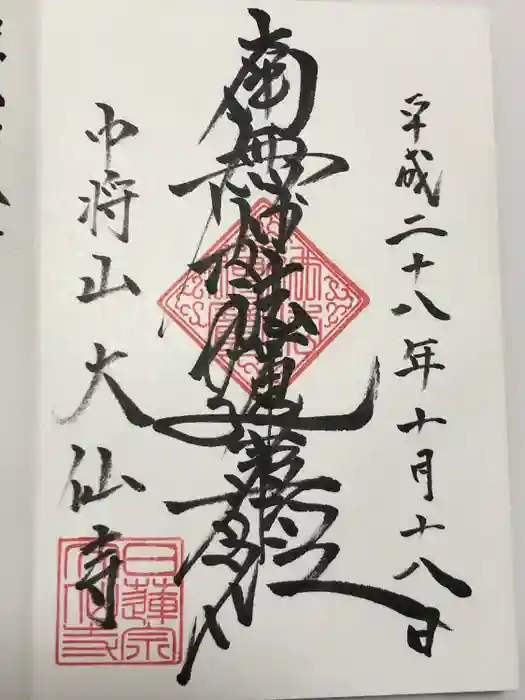 平成二十八年十月十八日
南無妙法蓮華経
中将山 大仙寺
日蓮宗
大仙寺